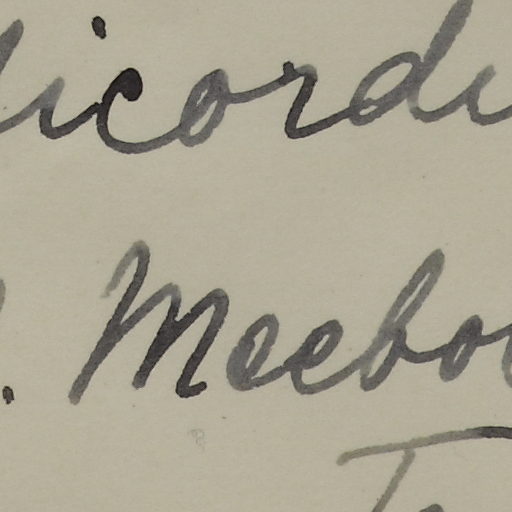 icordi
. Meebo
T